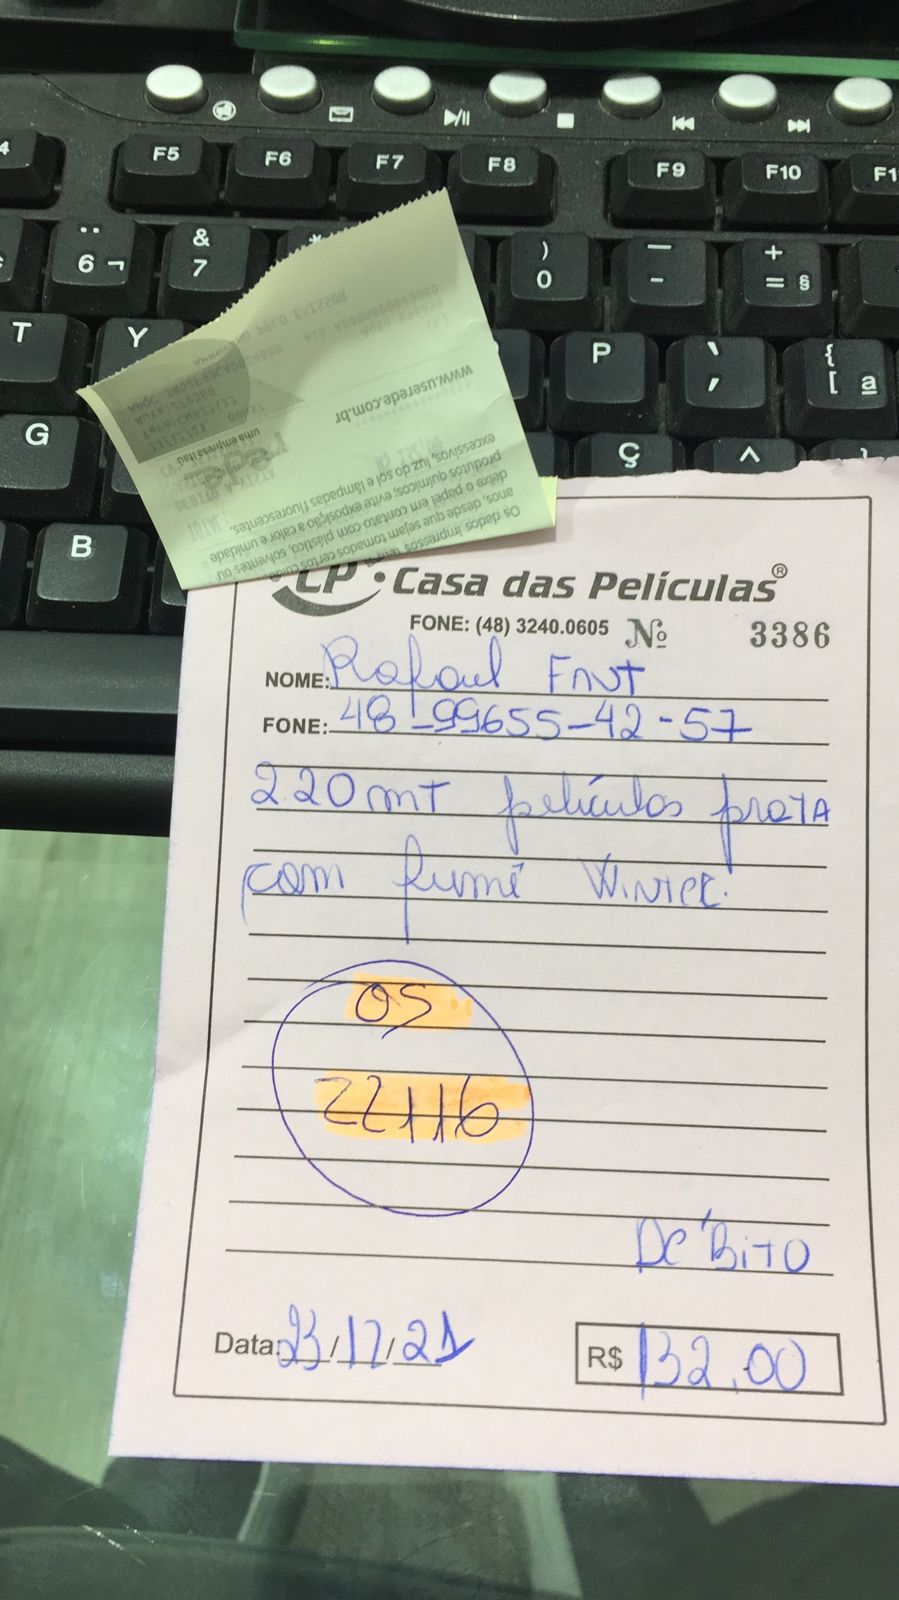 F5 F6 F7 F8 F9 F10 F1
6 ¬ & 7 ) 0 — - + = §
T Y P ` ´ { [ ª
G Ç ^
B
www.userede.com.br
uma empresa Itaú
Os dados impressos
anos, desde que sejam tomados certos
deixe o papel em contato com plástico, solventes ou
produtos químicos; evite exposição a calor e umidade
excessivos, luz do sol e lâmpadas fluorescentes.
CP • Casa das Películas®
FONE: (48) 3240.0605 Nº 3386
NOME: Rafael
FONE: 48-99655-42-57
2.20 mT películas prata
com fumê Winter.
OS
22116
DÉBITO
Data: 23/12/21 R$ 132,00